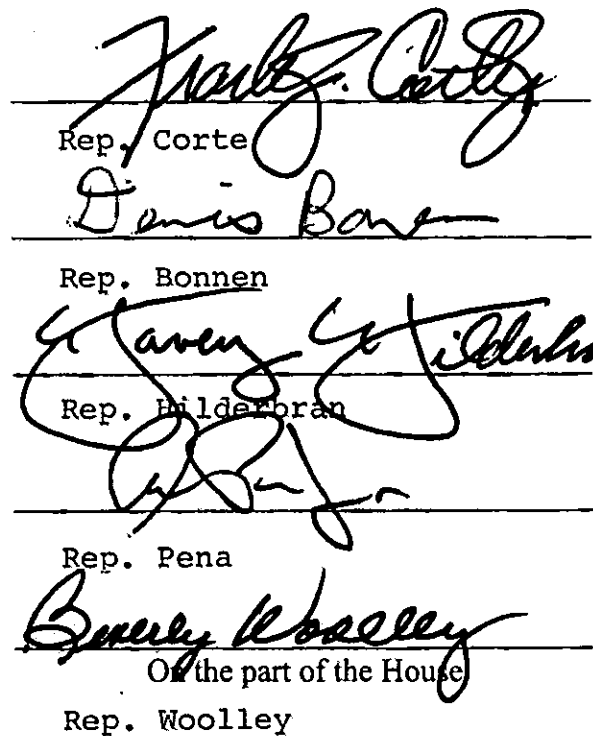 Frank J. Corte
Rep. Corte
Dennis Bonnen
Rep. Bonnen
Harvey Hilderbran
Rep. Hilderbran
Rep. Pena
Beverly Woolley
On the part of the House
Rep. Woolley